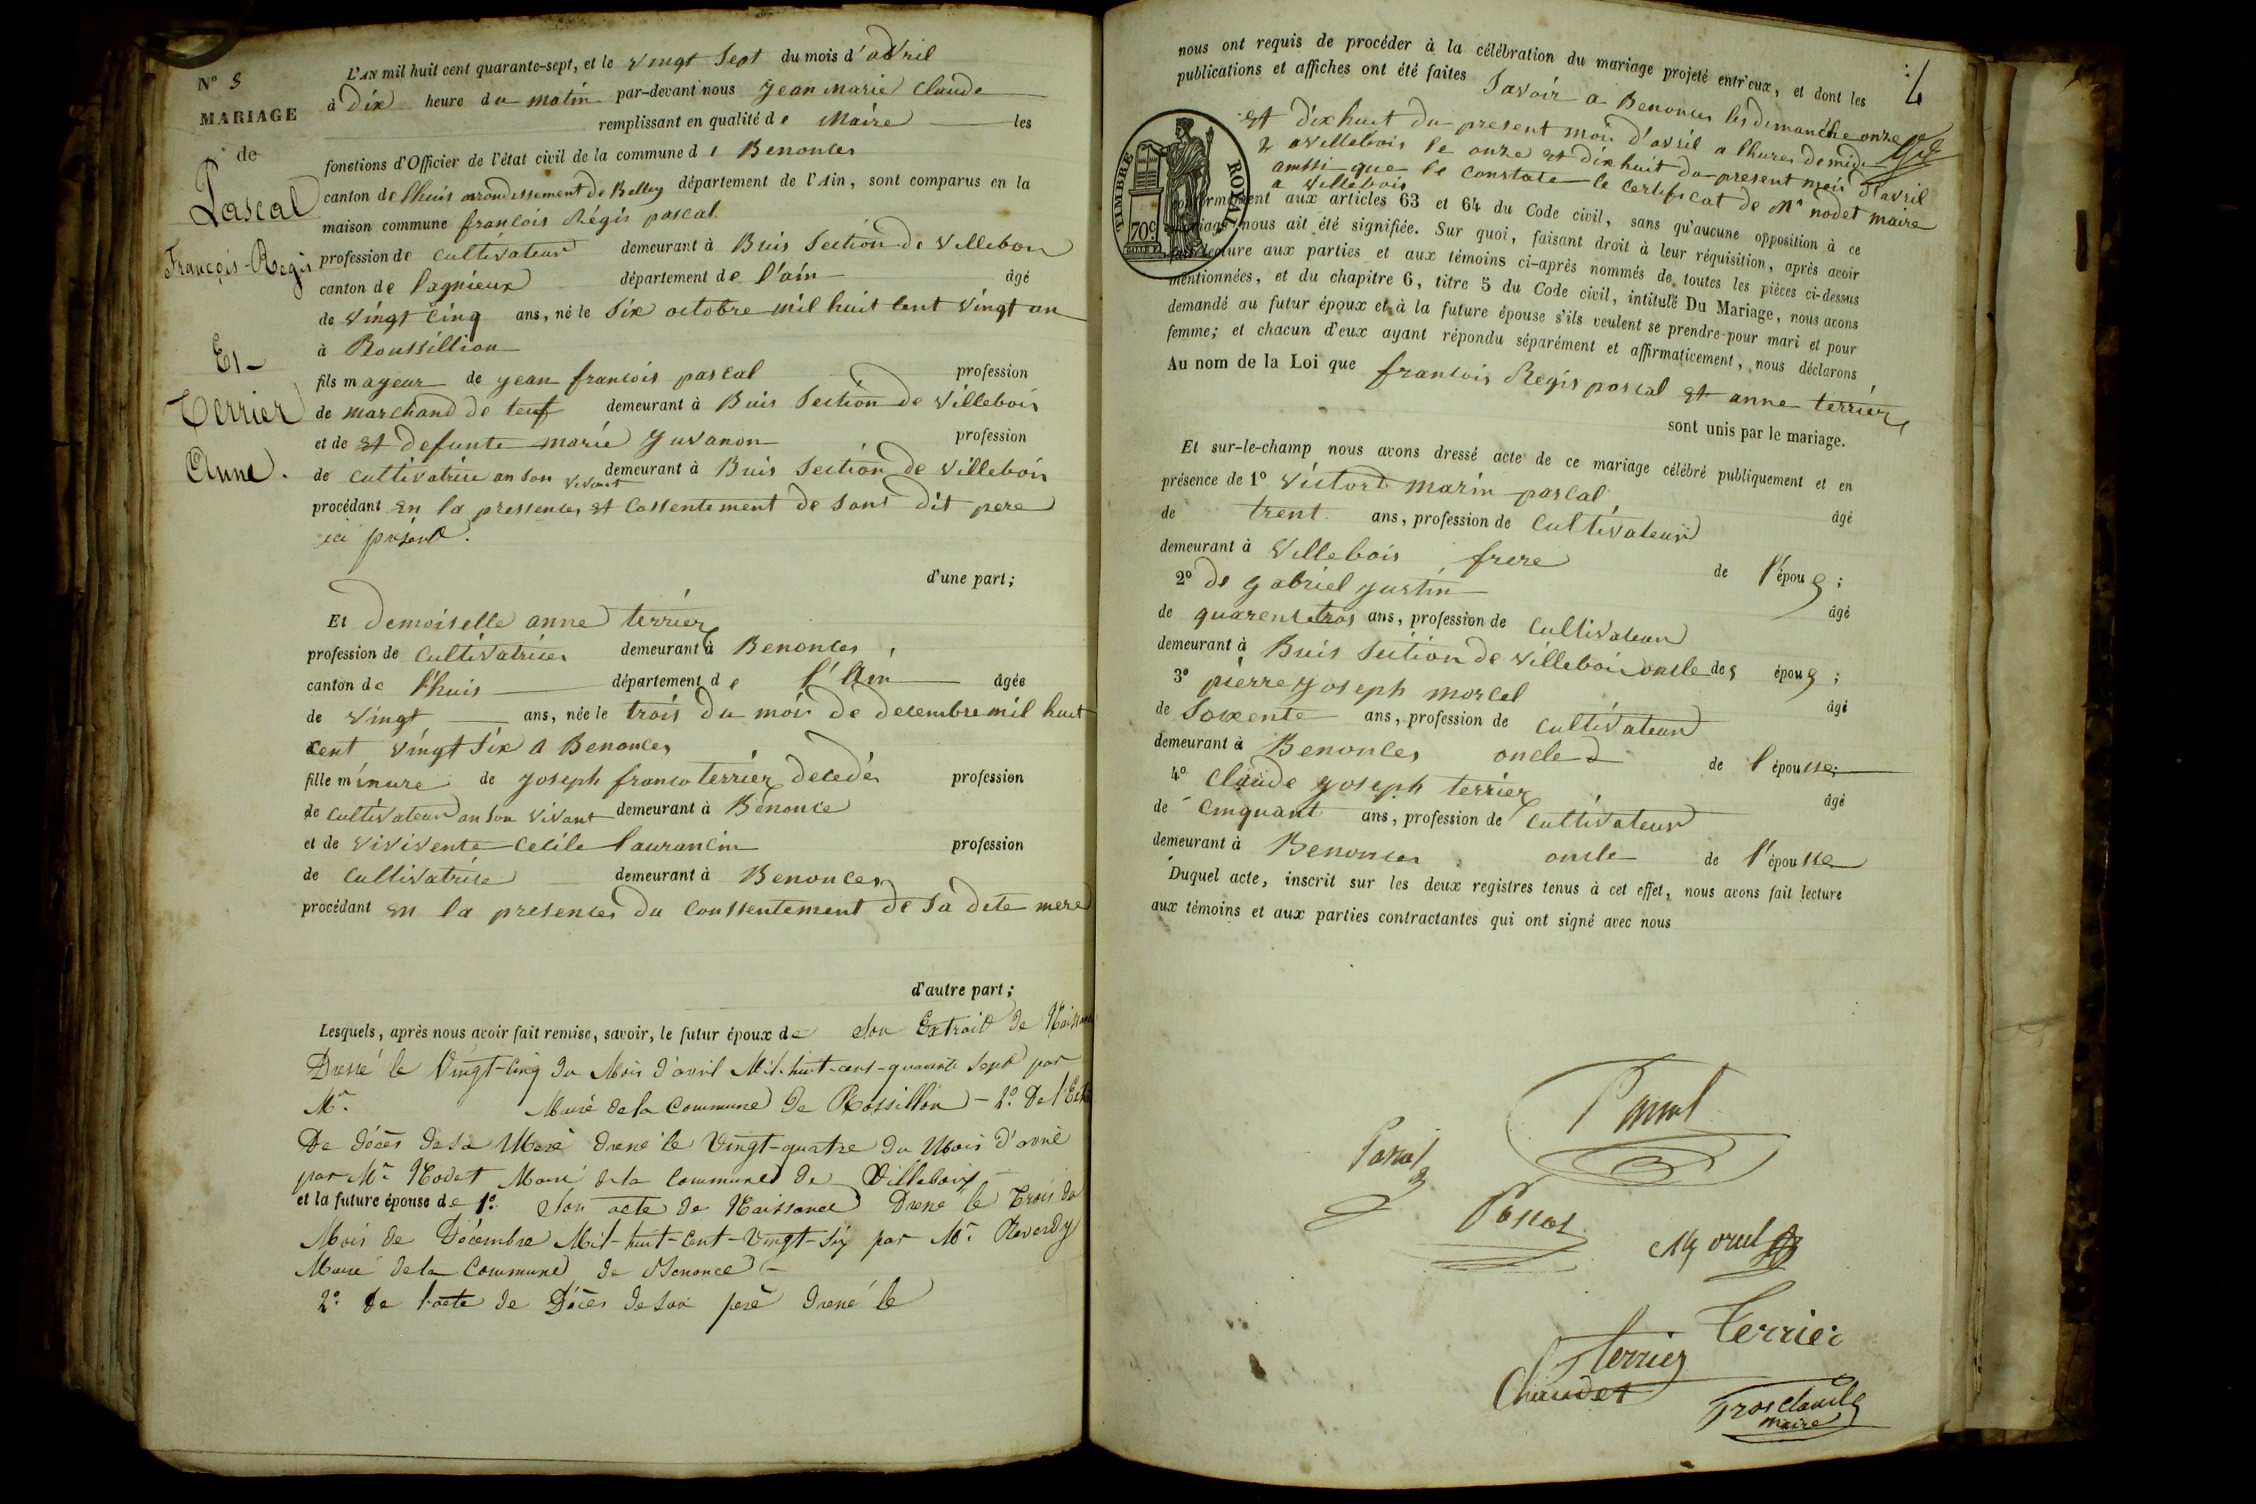 N° 3
MARIAGE
de
Pascal
François-Regis
Et
Terrier
Anne.
L'AN mil huit cent quarante-sept, et le vingt Sept du mois d'avril
à Dix heure du matin par-devant nous jean marie Claude
remplissant en qualité de Maire les
fonctions d'Officier de l'état civil de la commune de Benonces
canton de lhuis arrondissement de Belley département de l'Ain, sont comparus en la
maison commune francois Régis pascal
profession de cultivateur demeurant à Buis Section de Villebois
canton de lagnieux département de l'ain âgé
de vingt cinq ans, né le Six octobre mil huit cent vingt un
à Roussillion
fils mayeur de jean francois pascal profession
de marchand de tuf demeurant à Buis Section de Villebois
et de et defunte marie juvanon profession
de cultivatrice an son vivant demeurant à Buis Section de Villebois
procédant en la pressences et Cossentement de sont dit pere
ici présent.
d'une part;
Et Demoiselle anne terrier
profession de cultivatrices demeurant à Benonces
canton de lhuis département de l'Ain âgée
de vingt ans, née le trois du mois de decembre mil huit
cent vingt six a Benonces
fille minure de joseph franco terrier decedés profession
de cultivateur an son vivant demeurant à Bénonce
et de vivivente Cecile laurancin profession
de cultivatrise demeurant à Benonces
procédant en la presences du conssentement de sa dete mere
d'autre part;
Lesquels, après nous avoir fait remise, savoir, le futur époux de son Extrait de Naissance
Dressé le Vingt-cinq du Mois d'avril Mil-huit-cent-quarante sept par
Mr. Maire de la Commune de Rossillon - 2° De l'Extr
De décès de sa Mere dressé le Vingt-quatre du Mois d'avril
par Mr Nodet Maire de la Commune de Villebois
et la future épouse de 1° Son acte de Naissance Dressé le Trois du
Mois de Décembre Mil-huit-Cent-Vingt-Six par Mr. Reverdy
Maire de la Commune de Benonce -
2° de l'acte de Décès de son père dressé le
4
nous ont requis de procéder à la célébration du mariage projeté entr'eux, et dont les
publications et affiches ont été faites Savoir a Benonces les dimanche onze
et dixhuit du present mois d'avril a lhures de midi
& a Villebois le onze et dix huit du present mois d'avril
anssi que le constate le certificat de Mr nodet maire
a Villebois
TIMBRE ROYAL
70c
conformément aux articles 63 et 64 du Code civil, sans qu'aucune opposition à ce
mariage nous ait été signifiée. Sur quoi, faisant droit à leur réquisition, après avoir
fait lecture aux parties et aux témoins ci-après nommés de toutes les pièces ci-dessus
mentionnées, et du chapitre 6, titre 5 du Code civil, intitulé Du Mariage, nous avons
demandé au futur époux et à la future épouse s'ils veulent se prendre pour mari et pour
femme; et chacun d'eux ayant répondu séparément et affirmativement, nous déclarons
Au nom de la Loi que francois Regis pascal et anne terrier
sont unis par le mariage.
Et sur-le-champ nous avons dressé acte de ce mariage célébré publiquement et en
présence de 1° Victord marin pascal âgé
de trent ans, profession de Cultivateur
demeurant à Villebois frere de l'épous;
2° de gabriel justin âgé
de quarentetrois ans, profession de Cultivateur
demeurant à Buis Section de Villebois oncle des épous;
3° pierre joseph morcel âgé
de Soxente ans, profession de cultivateur
demeurant à Benonces oncle de l'épousse;
4° Claude joseph terrier âgé
de cinquant ans, profession de cultivateur
demeurant à Benonces oncle de l'épousse
Duquel acte, inscrit sur les deux registres tenus à cet effet, nous avons fait lecture
aux témoins et aux parties contractantes qui ont signé avec nous
Pascal
Pascal
Terrier
Terrier
Chaudet
maire